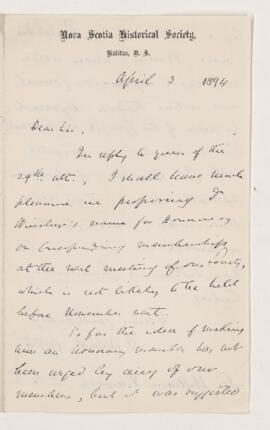 Nova Scotia Historical Society,
Halifax, N. S.
April 3 1894
Dear Sir,
In reply to yours of the
29th ult., I shall have much
pleasure in proposing Dr
name for Honorary
or Corresponding membership
at the next meeting of our Society,
which is not likely to be held
before November next.
So far the idea of making
him an Honorary member has not
been urged by any of our
members, but it was suggested